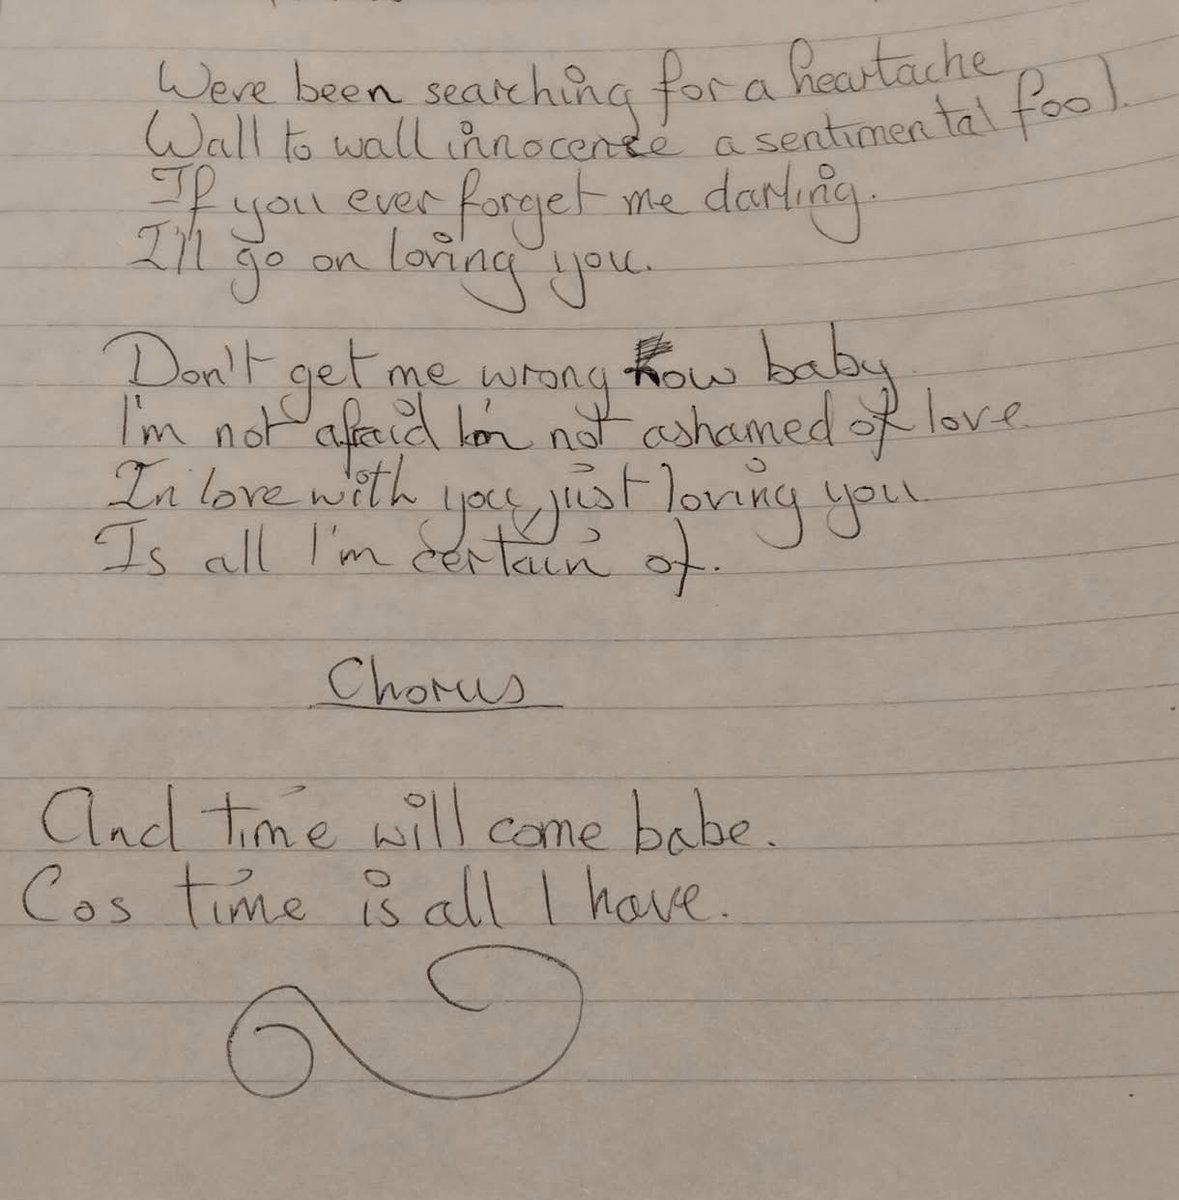 Were been searching for a heartache
Wall to wall innocence a sentimental fool.
If you ever forget me darling.
I'll go on loving you.
Don't get me wrong now baby
I'm not afraid I'm not ashamed of love
In love with you, just loving you
Is all I'm certain of.
Chorus
And time will come babe.
Cos time is all I have.